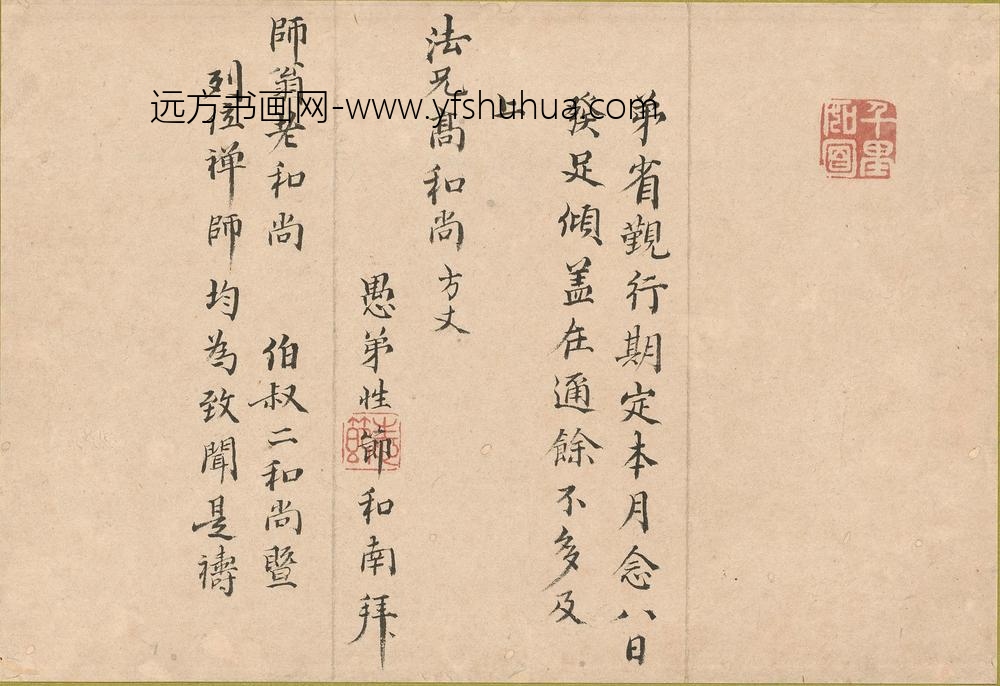 千里如面
弟省覲行期定本月念八日
發足傾盖在通餘不多及
上
法兄髙和尚方丈
愚弟性節和南拜
師翁老和尚 伯叔二和尚暨
列位禅師均為致聞是禱
远方书画网-www.yfshuhua.com